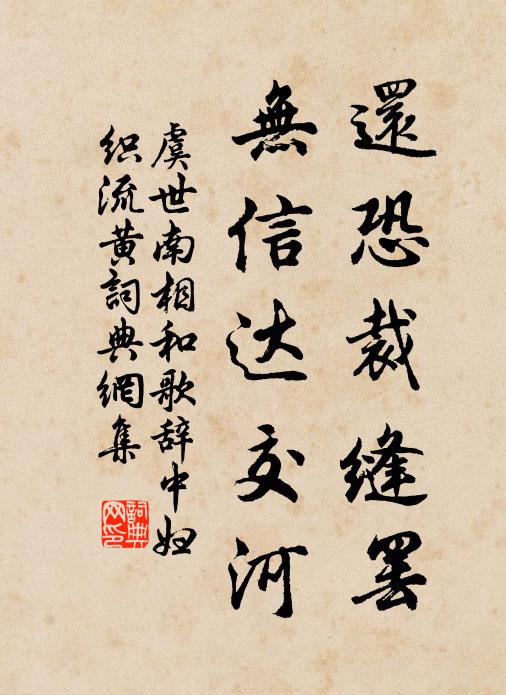 還恐裁縫罢
無信达交河
虞世南相和歌辞中妇
织流黄詞典網集
詞典网印